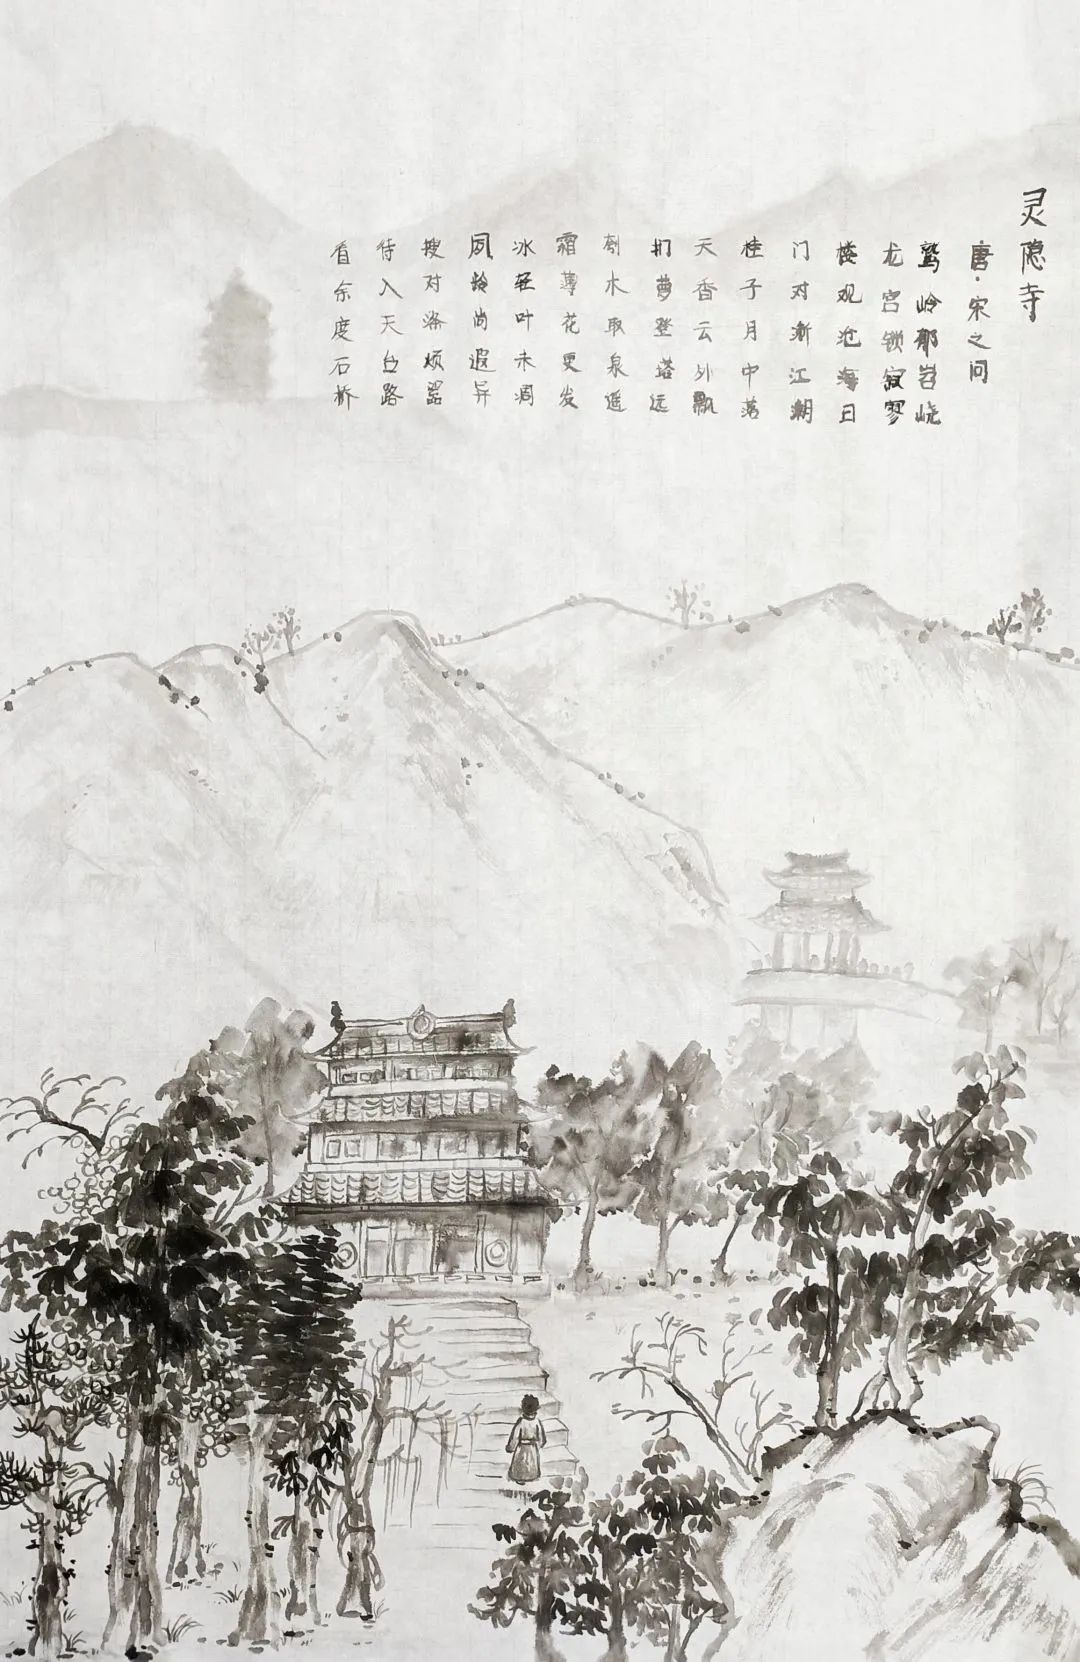 灵隐寺
唐·宋之问
鹫岭郁岧峣
龙宫锁寂寥
楼观沧海日
门对渐江潮
桂子月中落
天香云外飘
扪萝登塔远
刳木取泉遥
霜薄花更发
冰轻叶未凋
夙龄尚遐异
搜对涤烦嚣
待入天台路
看余度石桥